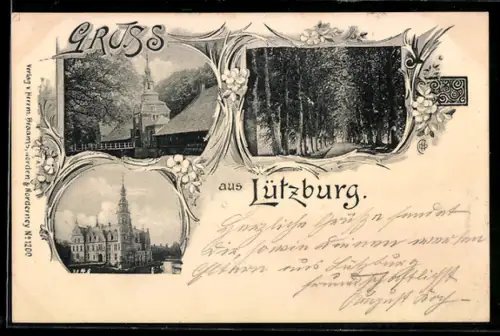 GRUSS
aus Lützburg.
Verlag v. Herrm. Braams, Norden & Norderney. No 1200
Herzliche Grüße sendet
Dir, sowie Deinen werten
Eltern aus Lützburg
freundschaftlichst
August